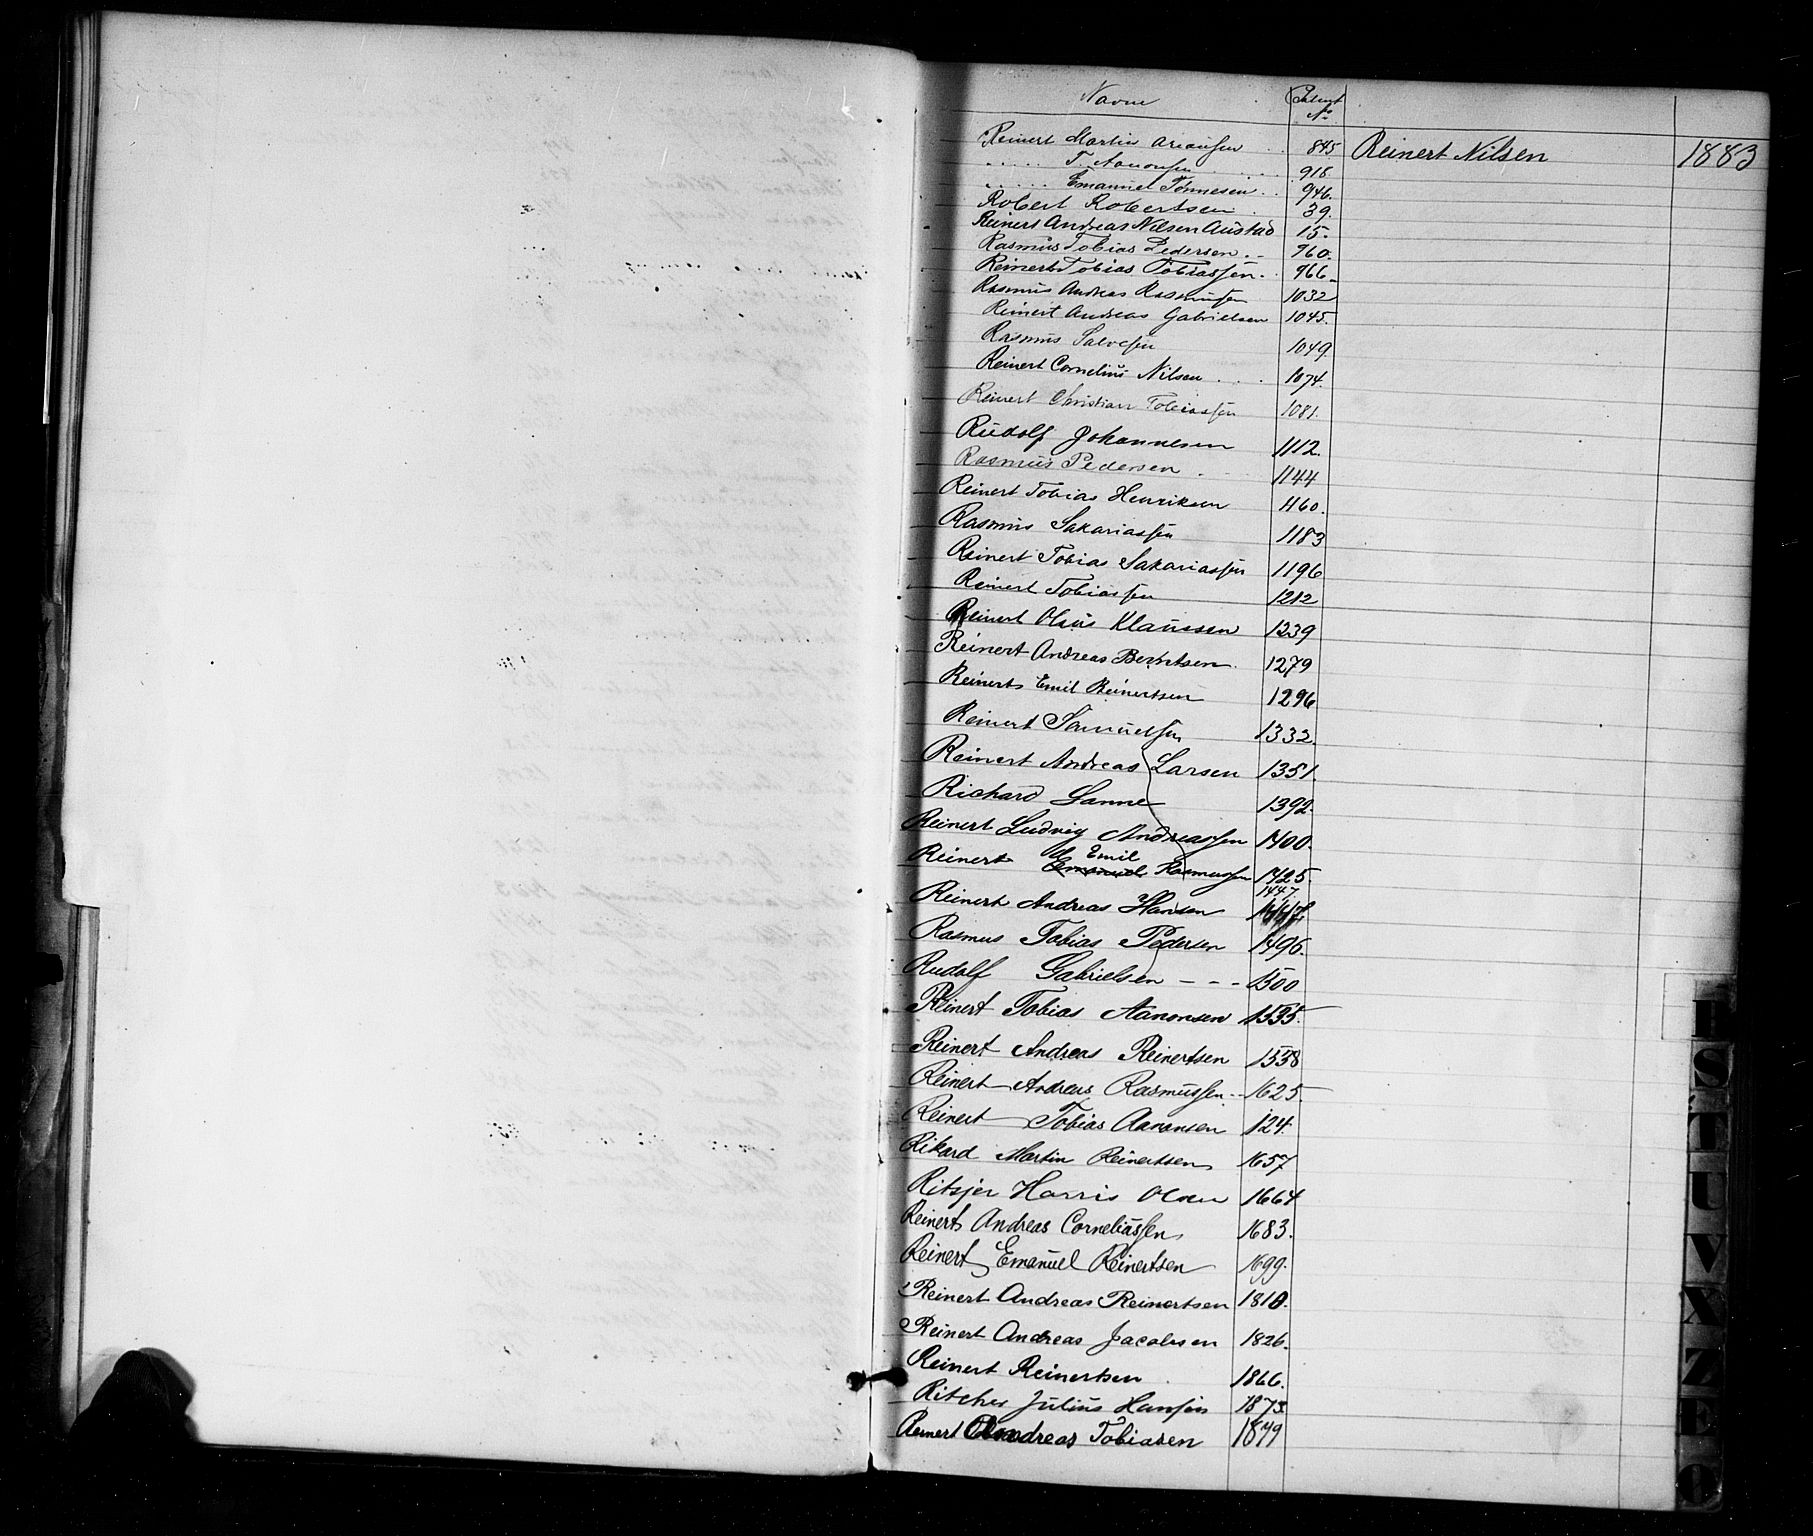 Navne Patent No
Reinert Martin Ariansen 845 Reinert Nilsen 1883
..... T. Aanonsen 918
..... Emanuel Tønnesen 946.
Robert Robertsen 39.
Reinert Andreas Nilsen Austad 15.
Rasmus Tobias Pedersen 960.
Reinert Tobias Tobiassen 966
Rasmus Andreas Rasmussen 1032
Reinert Andreas Gabrielsen 1045.
Rasmus Salvesen 1049
Reinert Cornelius Nilsen 1074.
Reinert Christian Tobiassen 1081.
Rudolf Johannesen 1112.
Rasmus Pedersen 1144
Reinert Tobias Henriksen 1160.
Rasmus Sakariassen 1183
Reinert Tobias Sakariassen 1196
Reinert Tobiassen 1212
Reinert Olaus Klaussen 1239
Reinert Andreas Berntsen 1279
Reinert Emil Reinertsen 1296
Reinert Samuelsen 1332.
Reinert Andreas Larsen 1351.
Richard Sanne 1392.
Reinert Ludvig Andreassen 1400.
Reinert Emil Emanuel Rasmussen 1425.
1447
Reinert Andreas Hansen
Rasmus Tobias Pedersen 1496.
Rudolf Gabrielsen - - - 1500
Reinert Tobias Aanonsen 1535.
Reinert Andreas Reinertsen 1558
Reinert Andreas Rasmussen 1625
Reinert Tobias Aanonsen 124.
Rikard Martin Reinertsen 1657
Ritsjer Harris Olsen 1664
Reinert Andreas Corneliussen 1683.
Reinert Emanuel Reinertsen 1699.
Reinert Andreas Reinertsen 1810.
Reinert Andreas Jacobsen 1826.
Reinert Reinertsen 1866.
Ritcher Julius Hansen 1873.
Reinert Andreas Tobiasen 1879
R
S
T
U
V
X
Z
Æ
Ø